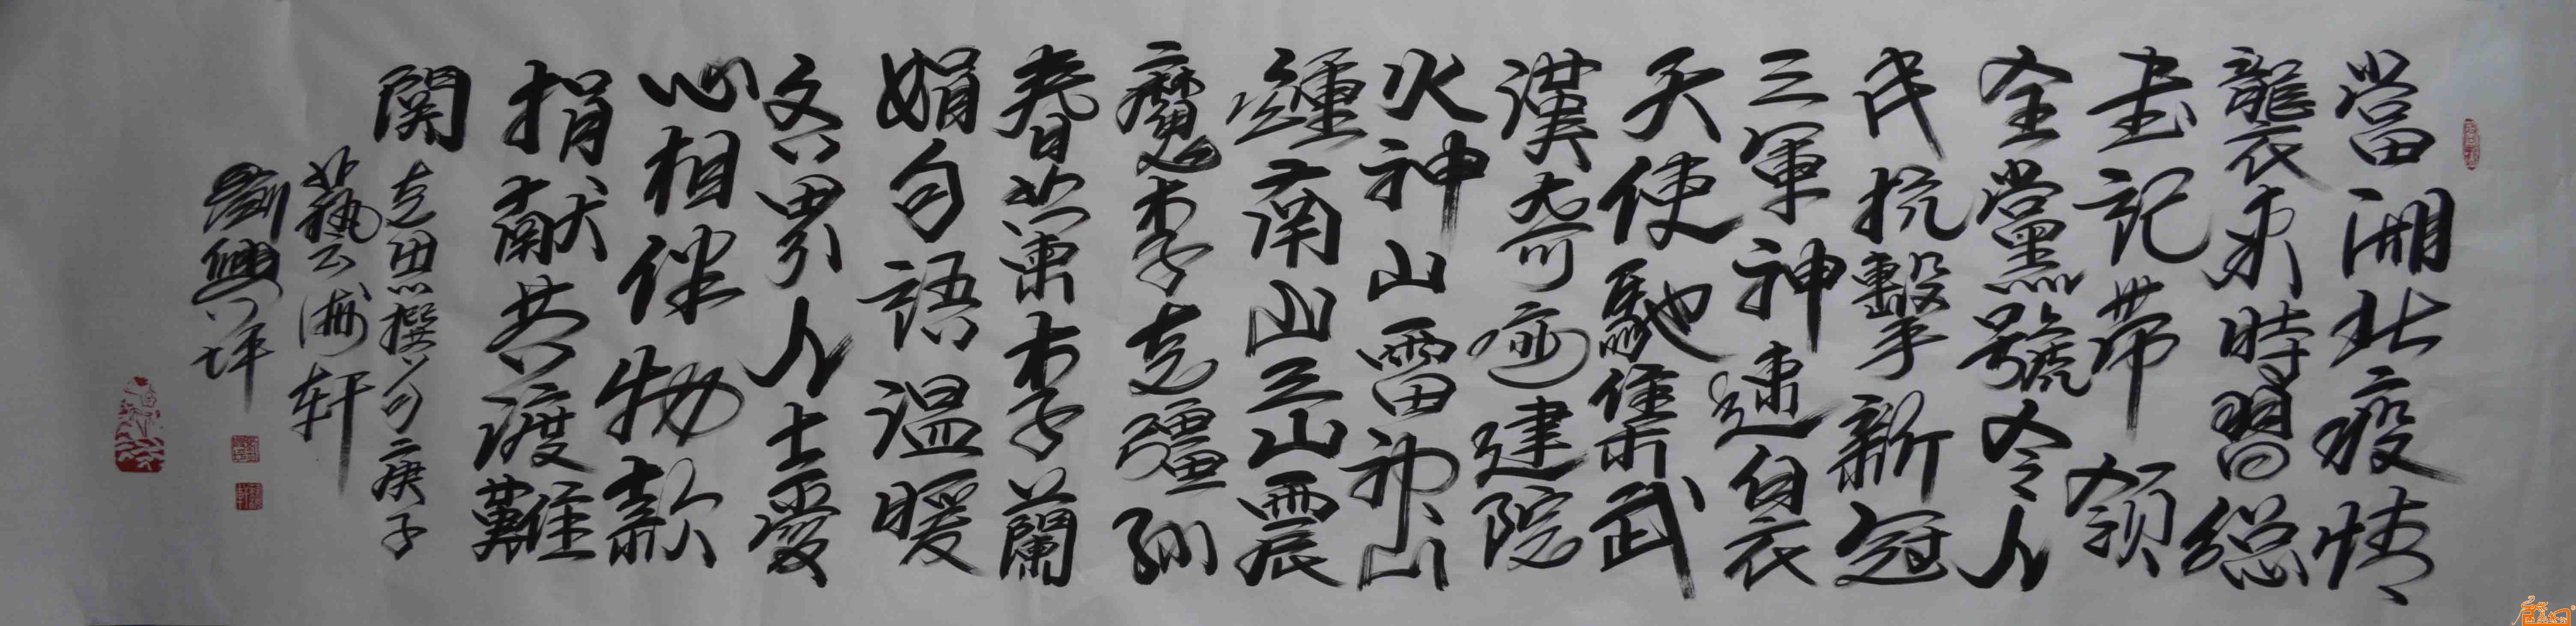 當湖北疫情
襲来時習總
書記带領
全黨號令人
民抗擊新冠
三軍神速白衣
天使馳集武
漢奇迹建院
火神山雷神山
鍾南山三山震
魔李克疆孙
春蘭李蘭
娟句語温暖
各界人士愛
心相伴物款
捐献共渡難
関
克思撰句庚子
藝云轩
劉興坪